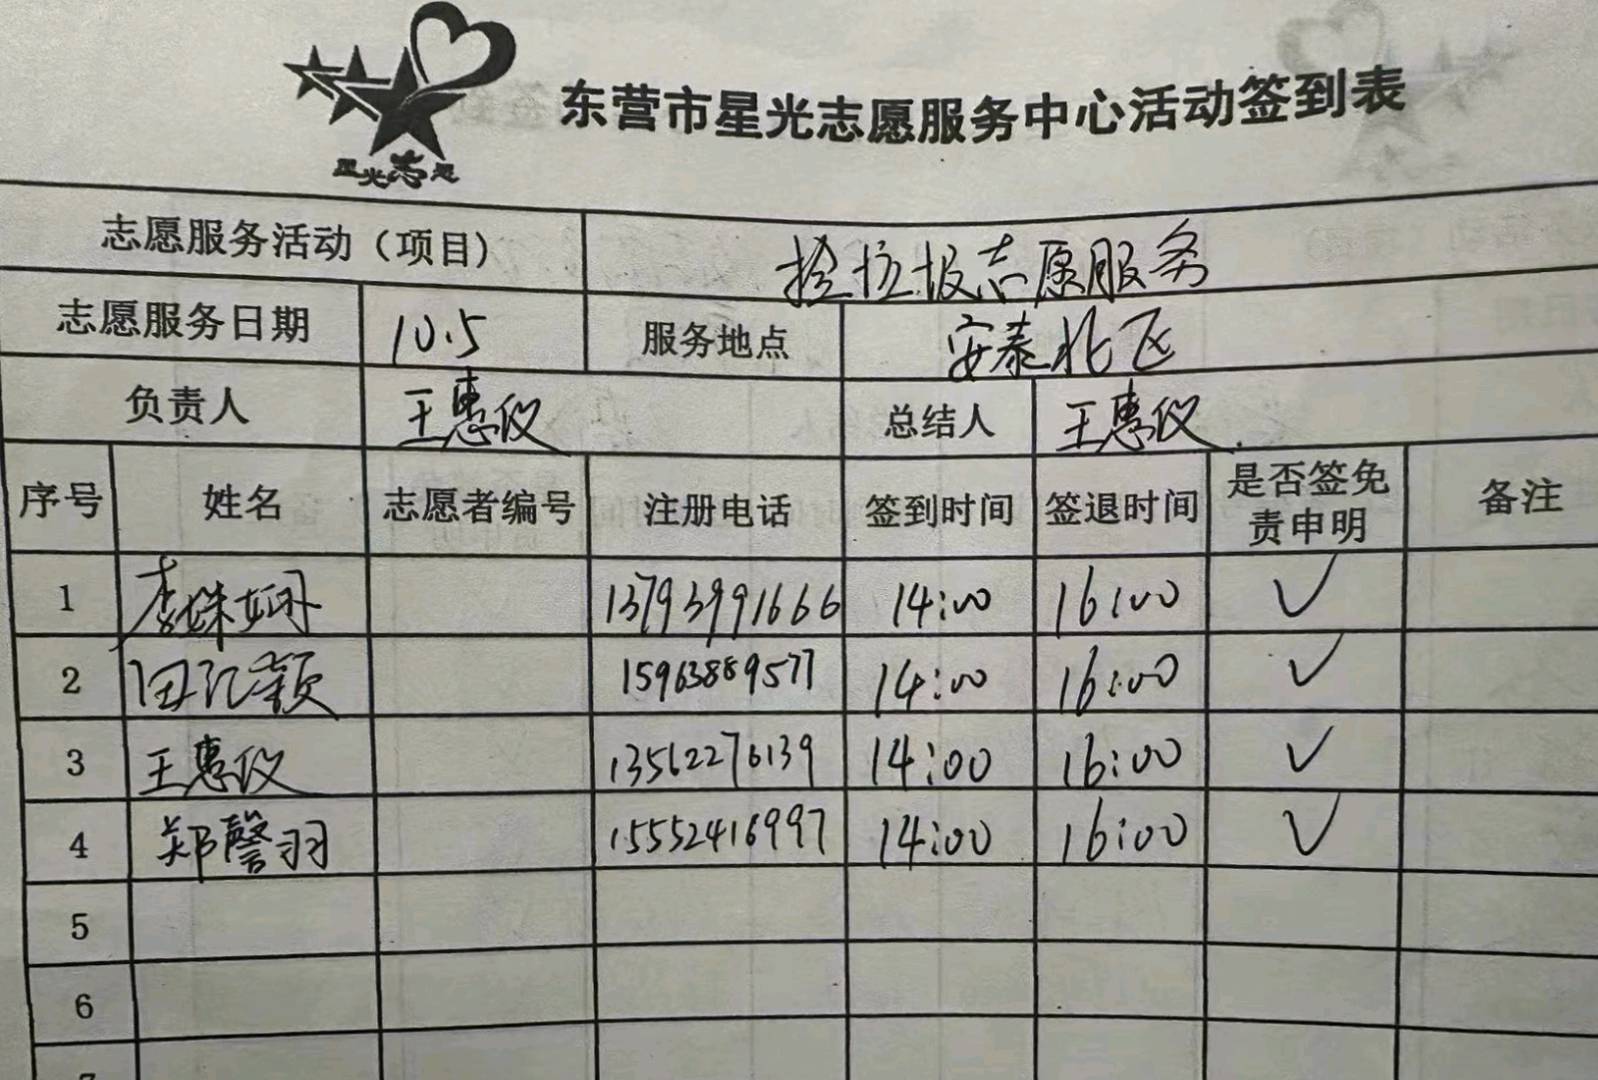 星光志愿
东营市星光志愿服务中心活动签到表
志愿服务活动（项目） 捡垃圾志愿服务
志愿服务日期 10.5 服务地点 安泰北区
负责人 王惠仪 总结人 王惠仪
序号 姓名 志愿者编号 注册电话 签到时间 签退时间 是否签免责申明 备注
1 李姝娴 13793991666 14:00 16:00 √
2 田 颖 15963889577 14:00 16:00 √
3 王惠仪 13562276139 14:00 16:00 √
4 郑馨羽 15552416997 14:00 16:00 √
5
6